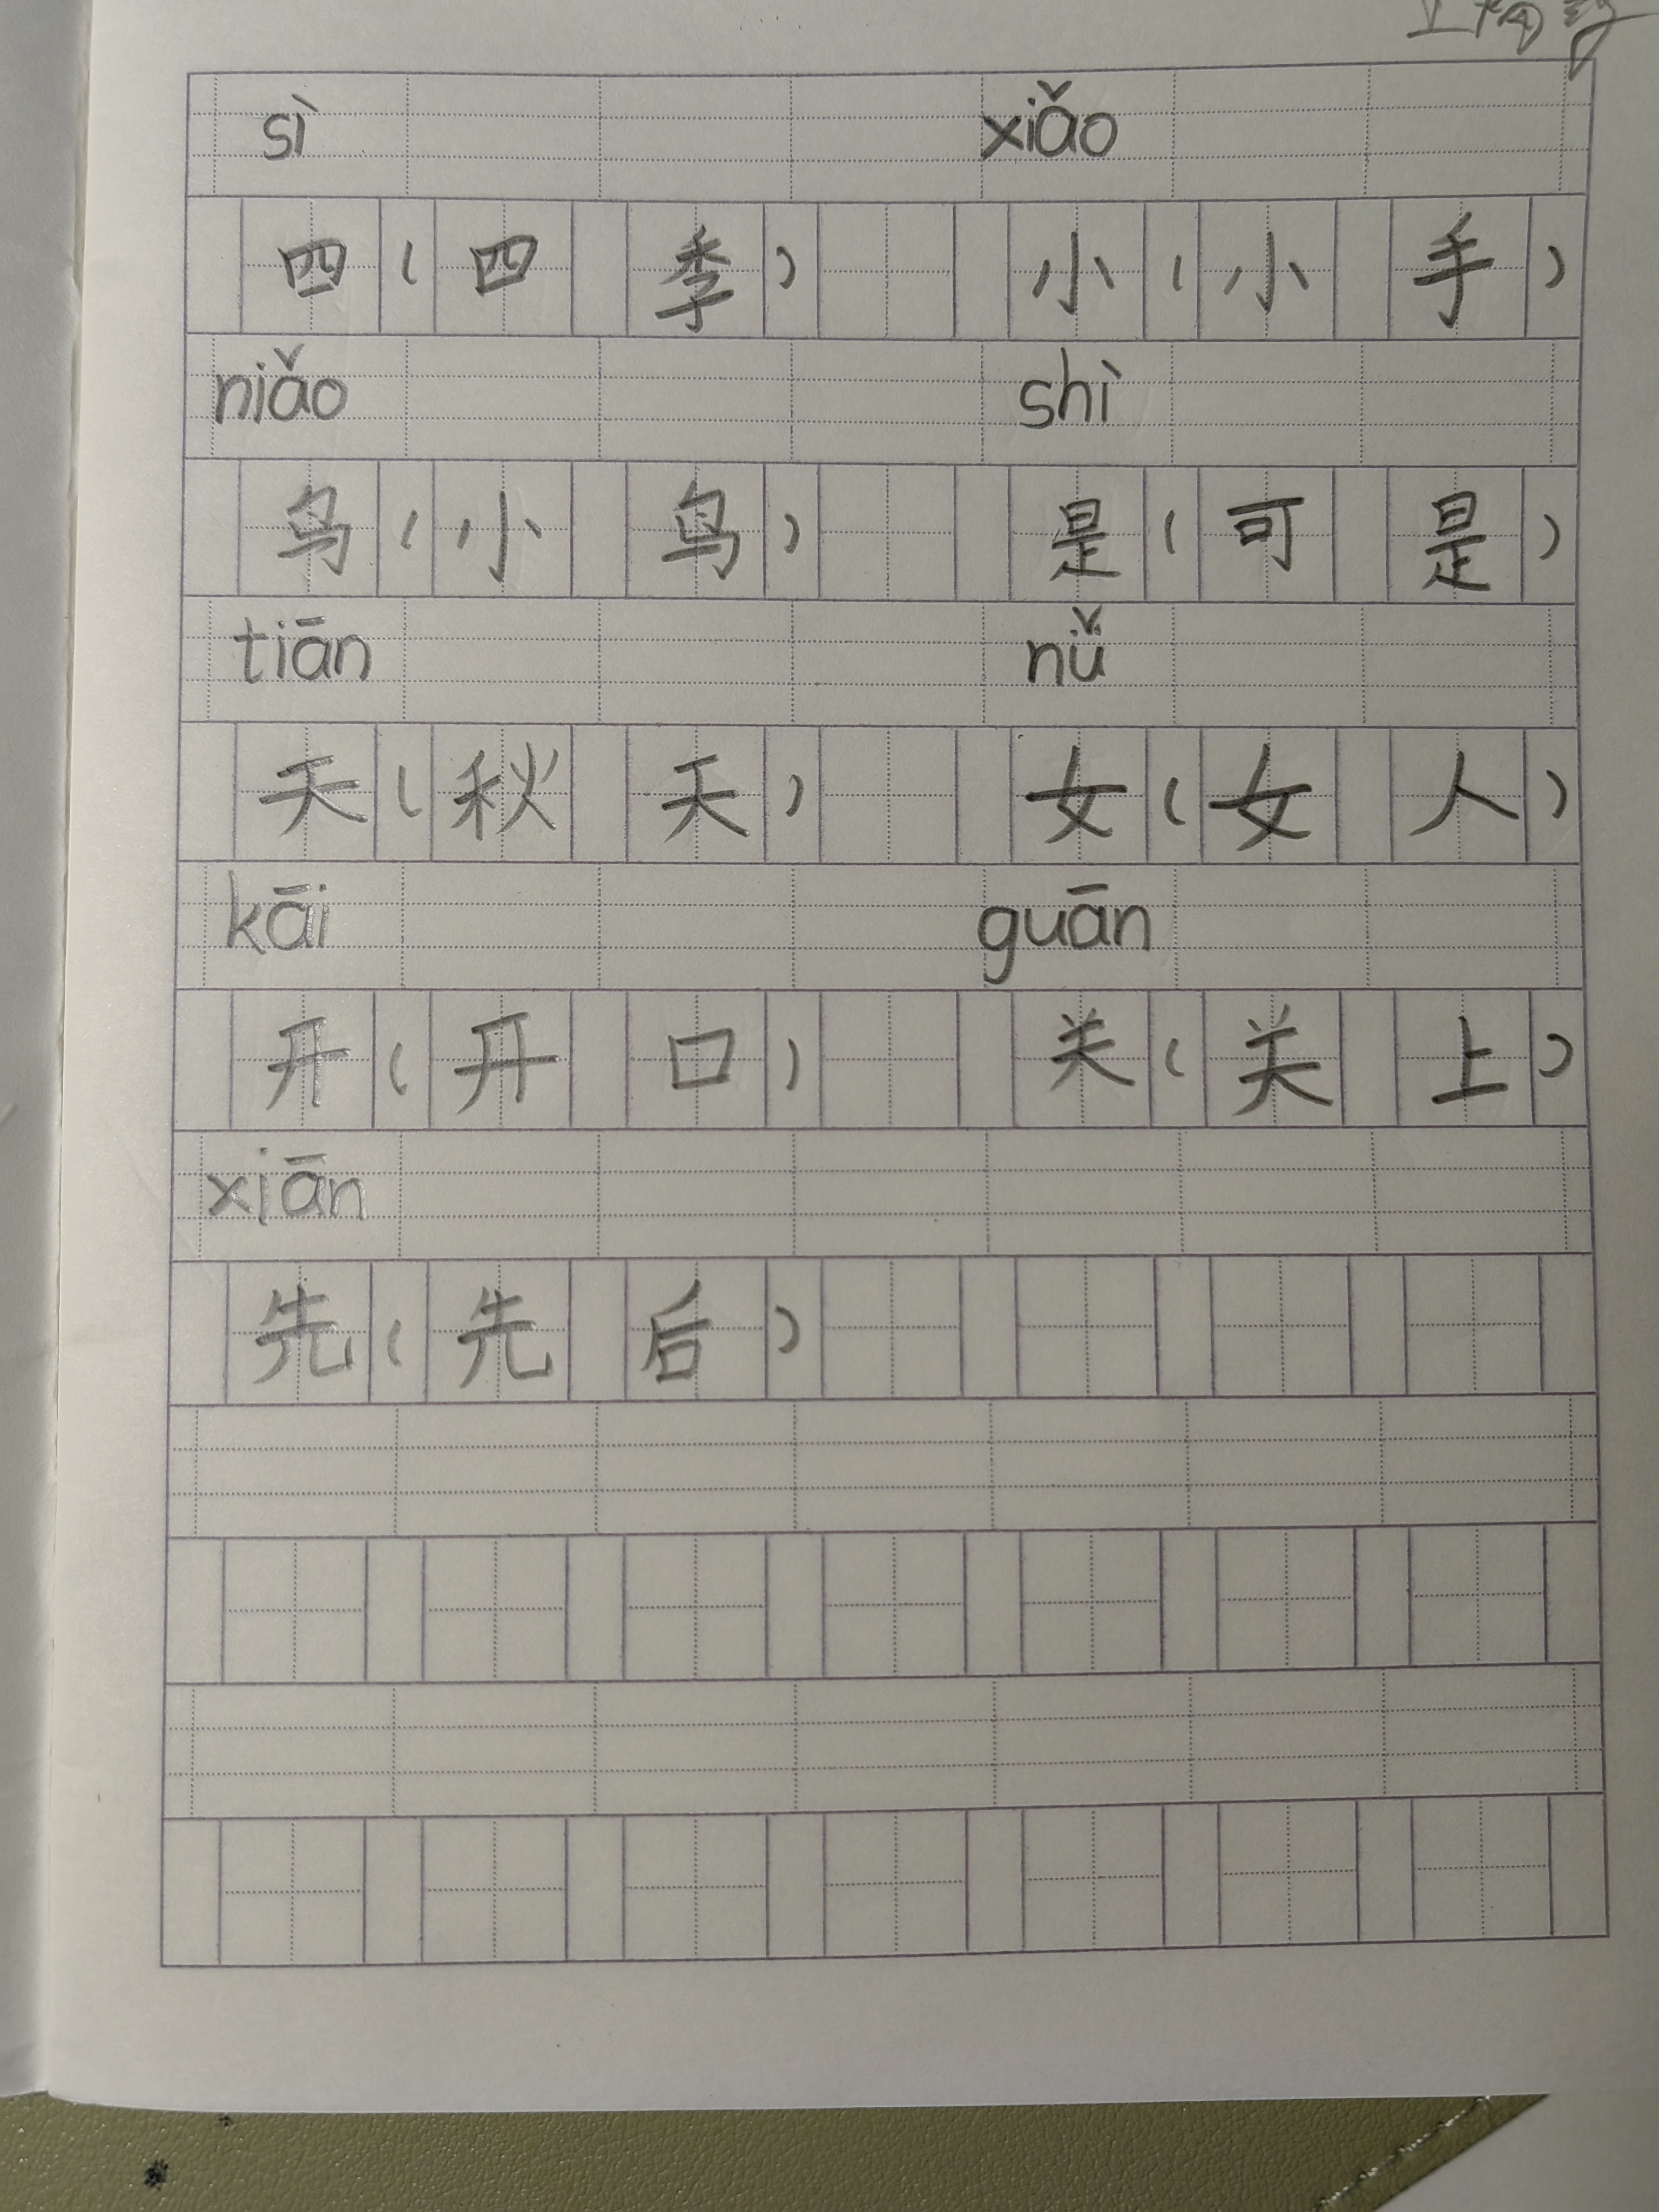 sì xiǎo
四(四季) 小(小手)
niǎo shì
鸟(小鸟) 是(可是)
tiān nǚ
天(秋天) 女(女人)
kāi guān
开(开口) 关(关上)
xiān
先(先后)